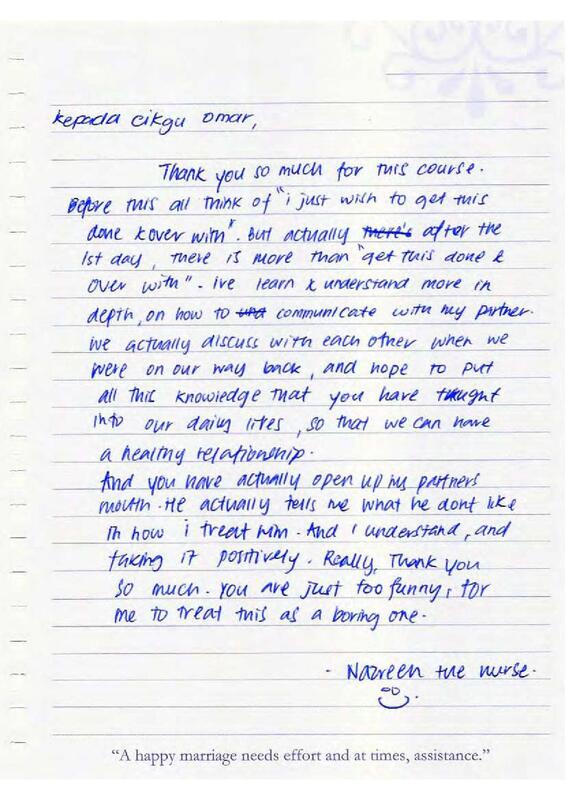 kepada cikgu omar,
Thank you so much for this course.
Before this all think of "i just wish to get this
done & over with". But actually there's after the
1st day, there is more than "get this done &
over with". ive learn & understand more in
depth, on how to communicate with my partner.
we actually discuss with each other when we
were on our way back, and hope to put
all this knowledge that you have taught
into our daily lives, so that we can have
a healthy relationship.
And you have actually open up my partners
mouth. He actually tells me what he dont like
in how i treat him. And I understand, and
taking it positively. Really, Thank you
so much. You are just too funny, for
me to treat this as a boring one.
- Nazreen the nurse.
"A happy marriage needs effort and at times, assistance."